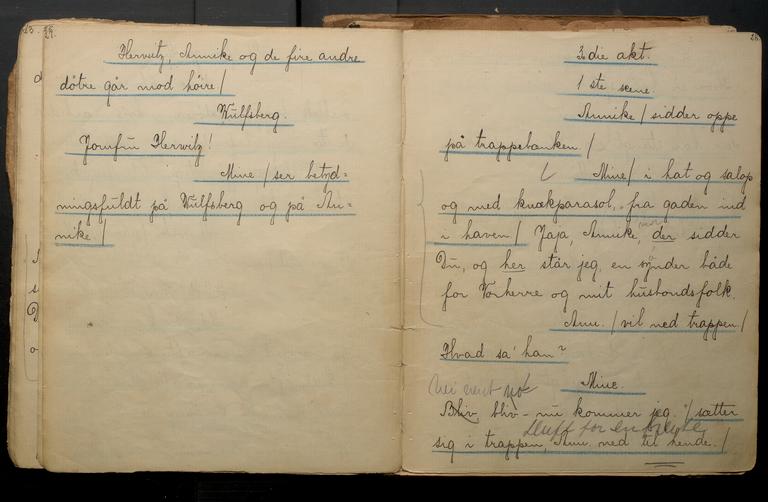 Herwitz, Annike og de fire andre
døtre går mod høire /
Wulfsberg.
Jomfru Herwitz!
Mine / ser betyd-
ningsfuldt på Wulfsberg og på An-
nike /
3die akt.
1ste scene.
Annike / sidder oppe
på trappebænken. /
Mine / i hat og salop
og med knækparasol, fra gaden ind
i haven / Jaja, Annike, der sidder
Du, og her står jeg, en synder både
for Vorherre og mit husbondsfolk.
Ann. / vil ned trappen /
Hvad sa' han?
Mine.
Bliv, bliv – nu kommer jeg. / sætter
sig i trappen, Ann. ned til hende. /